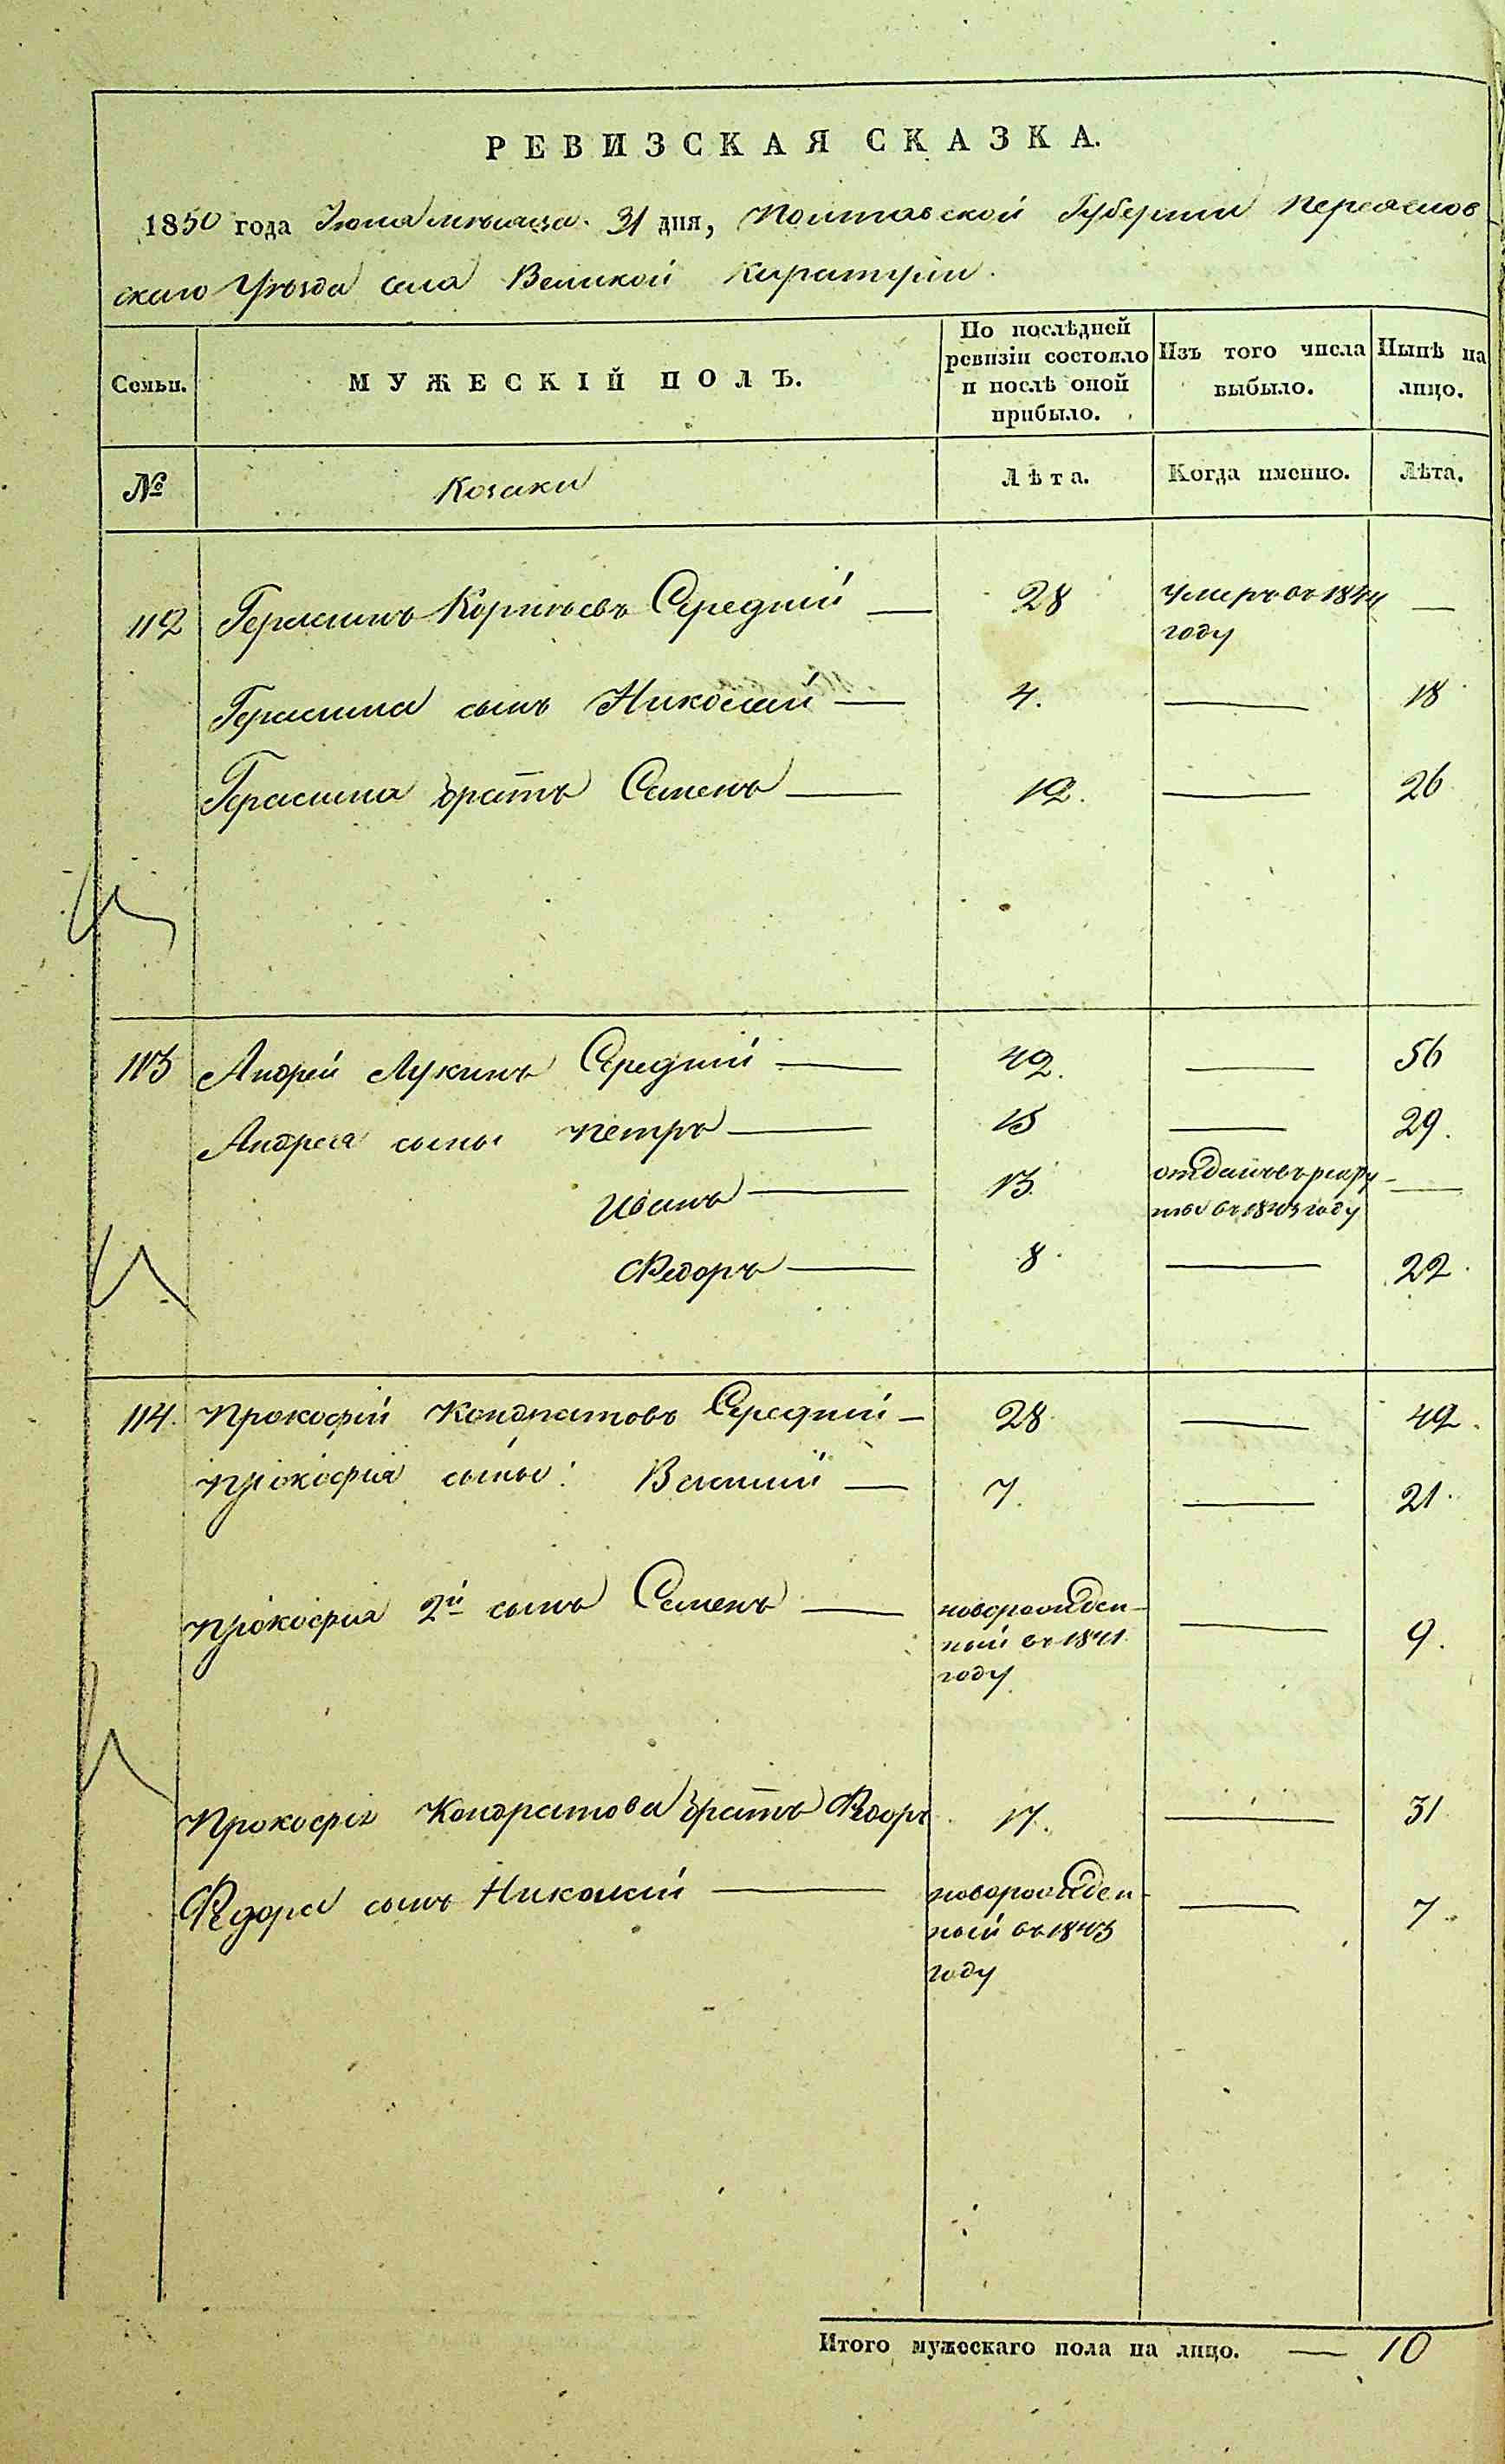 РЕВИЗСКАЯ СКАЗКА.
1850 года Июля месяца 31 дня, Полтавской Губернии Переяслов
скаго Уѣзда села Великой Каратули.
Семьи. МУЖЕСКІЙ ПОЛЪ. По послѣдней ревизіи состояло и послѣ оной прибыло. Изъ того числа выбыло. Нынѣ на лицо.
№ Козаки Лѣта. Когда именно. Лѣта.
112 Герасимъ Корнѣевъ Средній — 28 Умеръ въ 1844 году —
Герасима сынъ Николай — 4. — 18
Герасима братъ Семенъ — 12. — 26
113 Андрей Лукинъ Средній — 42. — 56
Андрея сыны Петръ — 15 — 29.
Иванъ — 13 отданъ въ рекру-
ты въ 1843 году —
Федоръ — 8 — 22.
114. Прокофій Кондратовъ Средній — 28 — 42.
Прокофія сыны: Василій — 7. — 21.
Прокофія 2й сынъ Семенъ — новорожден-
ный въ 1841
году — 9.
Прокофія Кондратова братъ Федоръ 17. — 31
Федора сынъ Николай — новорожден-
ный въ 1843
году — 7
Итого мужескаго пола на лицо. — 10